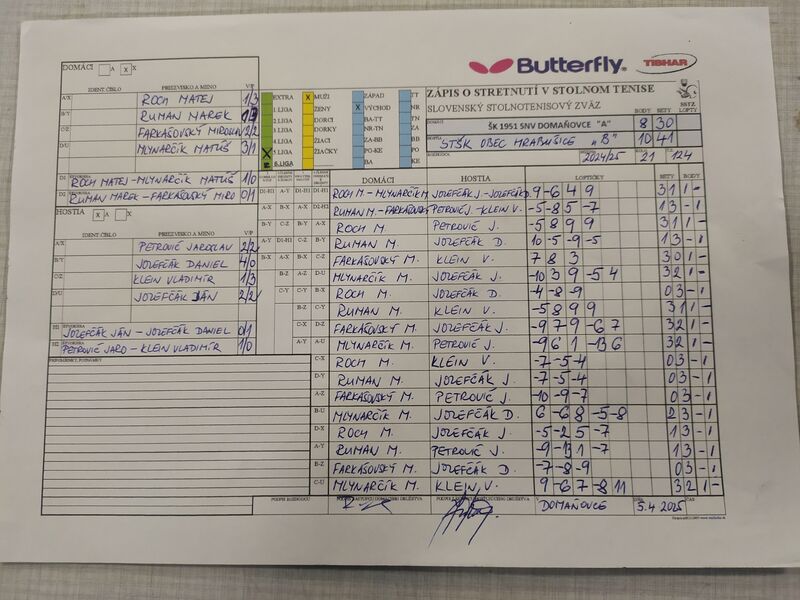 DOMÁCI A X
Butterfly
TIBHAR
ZÁPIS O STRETNUTÍ V STOLNOM TENISE
SLOVENSKÝ STOLNOTENISOVÝ ZVÄZ
SSTZ
BODY SETY LOPTY
DOMÁCI ŠK 1951 SNV DOMAŇOVCE "A" 8 30
HOSTIA STŠK OBEC HRABUŠICE "B" 10 41
ROZHODCA 2024/25 21 124
IDENT ČÍSLO PRIEZVISKO A MENO V/P
A/X ROCH MATEJ 1/3
B/Y RUMAN MAREK
C/Z FARKAŠOVSKÝ MIROSLAV 2/2
D/U MLYNARČÍK MATÚŠ 3/1
D1 ROCH MATEJ - MLYNARČÍK MATÚŠ 1/0
D2 RUMAN MAREK - FARKAŠOVSKÝ MIRO 0/1
HOSTIA A X
IDENT ČÍSLO PRIEZVISKO A MENO V/P
A/X PETROVIČ JAROSLAV 2/2
B/Y JOZEFČÁK DANIEL 4/0
C/Z KLEIN VLADIMÍR 1/3
D/U JOZEFČÁK JÁN 2/2
H1 JOZEFČÁK JÁN - JOZEFČÁK DANIEL 0/1
H2 PETROVIČ JARO - KLEIN VLADIMÍR 1/0
PRIPOMIENKY, POZNÁMKY
EXTRA X MUŽI ZÁPAD TT
1.LIGA ŽENY X VÝCHOD NR
DORCI BA-TT ZA
DORKY NR-TN
ŽIACI ZA-BB
X 5.LIGA ŽIAČKY PO-KE
BA KE
DOMÁCI HOSTIA LOPTIČKY SETY BODY
D1-H1 ROCH M - MLYNARČÍK M JOZEFČÁK J - JOZEFČÁK D. -9 -6 4 9 3 1 1 -
RUMAN M - FARKAŠOVSKÝ PETROVIČ J - KLEIN V. -5 -8 5 -7 1 3 - 1
ROCH M. PETROVIČ J. -5 8 9 9 3 1 1 -
RUMAN M. JOZEFČÁK D. 10 -5 -9 -5 1 3 - 1
FARKAŠOVSKÝ M. KLEIN V. 7 8 3 3 0 1 -
MLYNARČÍK M. JOZEFČÁK J. -10 3 9 -5 4 3 2 1 -
ROCH M. JOZEFČÁK D. -4 -8 -9 0 3 - 1
RUMAN M. KLEIN V. -5 8 9 9 3 1 1 -
FARKAŠOVSKÝ M. JOZEFČÁK J. -9 7 9 -6 7 3 2 1 -
MLYNARČÍK M. PETROVIČ J. -9 6 1 -13 6 3 2 1 -
C-X ROCH M. KLEIN V. -7 -5 -4 0 3 - 1
D-Y RUMAN M. JOZEFČÁK J. -7 -5 -4 0 3 - 1
A-Z FARKAŠOVSKÝ M. PETROVIČ J. -10 -9 -7 0 3 - 1
B-U MLYNARČÍK M. JOZEFČÁK D. 6 -6 8 -5 -8 2 3 - 1
D-X ROCH M. JOZEFČÁK J. -5 -2 5 -7 1 3 - 1
A-Y RUMAN M. PETROVIČ J. 1 3 - 1
B-Z FARKAŠOVSKÝ M. JOZEFČÁK D. -7 -8 -9 0 3 - 1
C-U MLYNARČÍK M. KLEIN V. 9 -6 7 -8 11 3 2 1 -
PODPIS ROZHODCU
V DOMAŇOVCE 5.4.2025 ČAS